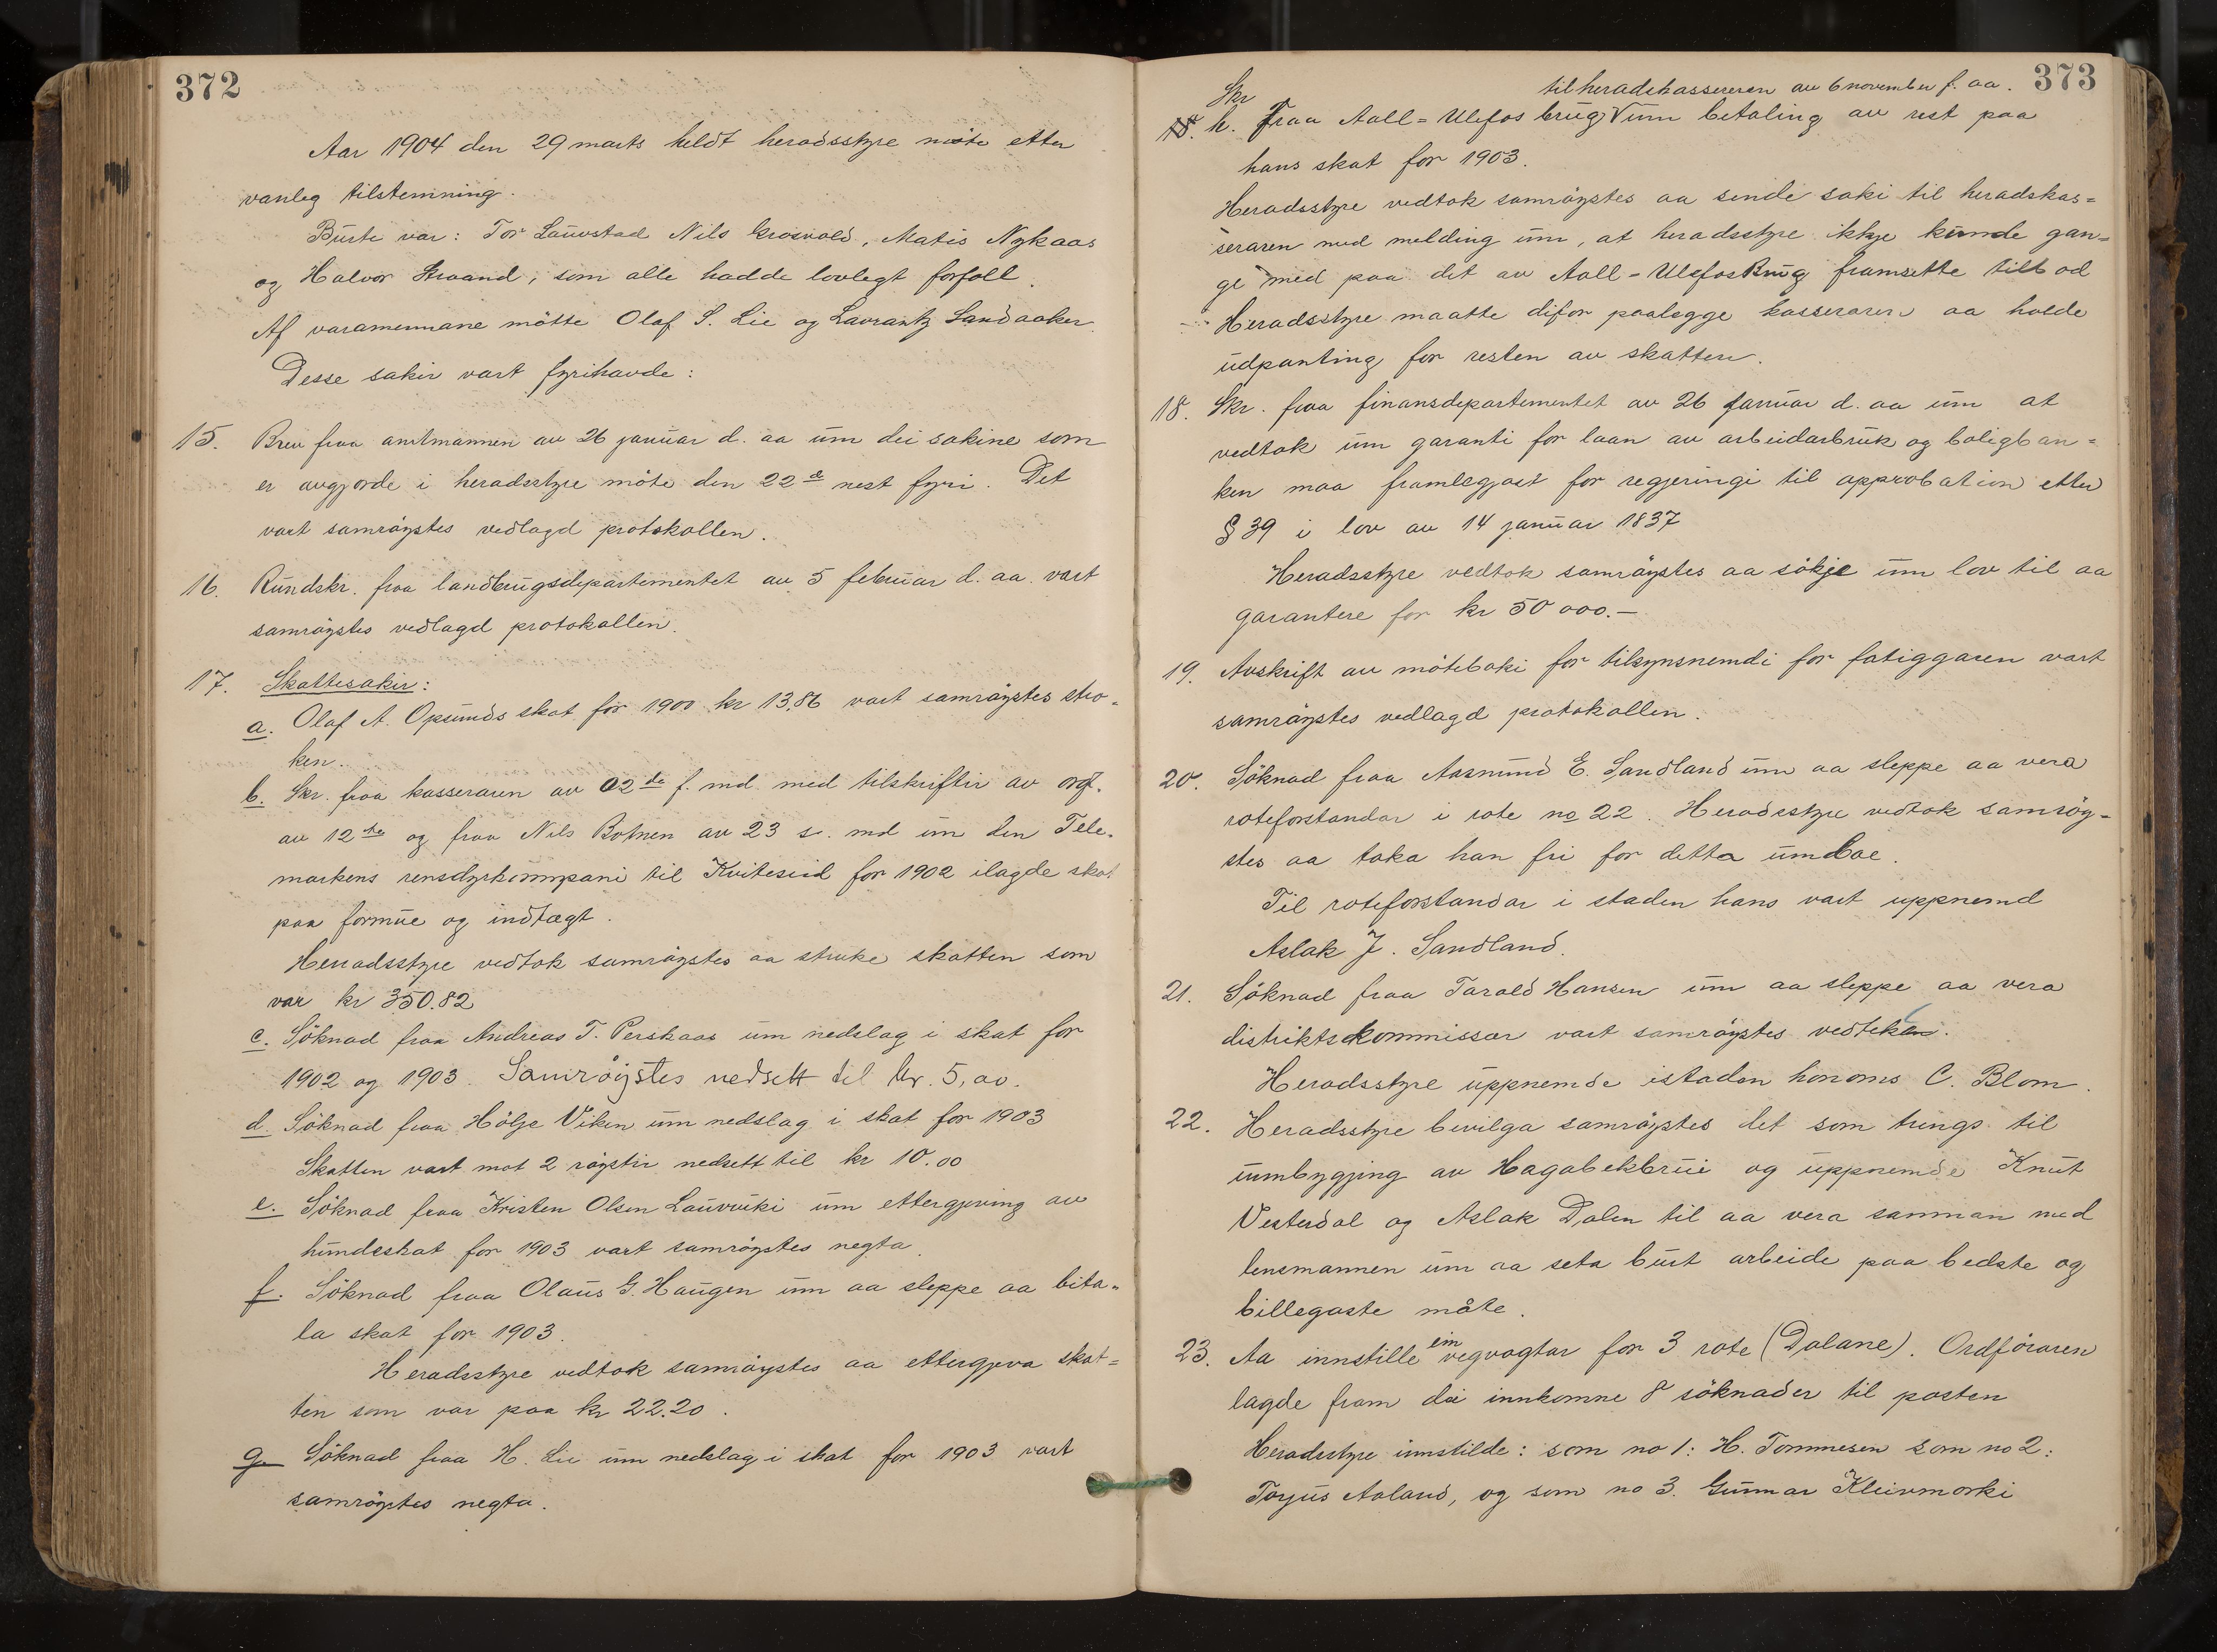 372
Aar 1904 den 29 marts heldt heradsstyre möte etter
vanleg tilstemning.
Burte var: Tor Lauvstad Nils Grosvold, Matis Nykaas
og Halvor Straand, som alle hadde lovlegt forfall.
Af varamennane mötte Olaf S. Lie og Lavrantz Sandaaker.
Desse sakir vart fyrihavde:
15. Brev fraa amtmannen av 26 januar d. aa um dei sakine som
er avgjorde i heradsstyre möte den 22de nest fyri. Det
vart samröystes vedlagd protokollen.
16. Rundskr. fraa landbrugsdepartementet av 5 februar d. aa. vart
samröystes vedlagd protokollen.
17. Skattesakir:
a. Olaf A. Opsunds skat for 1900 kr 13.86 vart samröystes stro-
ken.
b. Skr. fraa kasseraren av 02de f. md med tilskriftir av
av 12te og fraa Nils Botnen av 23 s. md um den Tele-
markens rensdyrkummpani til Kviteseid for 1902 ilagde skat
paa formue og indtægt.
Heradsstyre vedtok samröystes aa struke skatten som
var kr 350.82
c. Söknad fraa Andreas T. Perskaas um nedslag i skat for
1902 og 1903. Samröystes nedsett til kr. 5,00.
d. Söknad fraa Hölje Viken um nedslag i skat for 1903
Skatten vart mot 2 röystir nedsett til kr 10.00
e. Söknad fraa Kristen Olsen Lauvviki um ettergjeving av
hundeskat for 1903 vart samröystes negta.
f. Söknad fraa Olaus G. Haugen um aa sleppe aa bita-
la skat for 1903.
Heradsstyre vedtok samröystes aa ettergjeva skat=
ten som var paa kr 22.20.
g. Söknad fraa H. Lie um nedslag i skat for 1903 vart
samröystes negta.
373
til heradskassereren av 6 november f. aa.
Skr
18. h. Fraa Aall=Ulefos brug V um betaling av rest paa
hans skat for 1903.
Heradsstyre vedtok samröystes aa sende saki til heradskas=
seraren med melding um, at heradsstyre ikkje kunde gan=
ge med paa det av Aall-Ulefos Brug framsette tilbod
Heradsstyre maatte difor paalegge kasseraren aa holde
udpanting for resten av skatten.
18. Skr. fraa finansdepartementet av 26 januar d. aa um at
vedtok um garanti for laan av arbeidarbruk og boligban=
ken maa framlegjast for regjeringi til approbation etter
§ 39 i lov av 14 januar 1837
Heradsstyre vedtok samröystes aa sökje um lov til aa
garantere for kr 50 000.—
19. Avskrift av möteboki for tilsynsnemdi for fatiggaren vart
samröystes vedlagd protokollen.
20. Söknad fraa Aasmund E. Sandland um aa sleppe aa vera
roteforstandar i rote no 22. Heradsstyre vedtok samröy-
stes aa taka han fri for detta umboe.
Til roteforstandar i staden hans vart uppnemd
Aslak J. Sandland.
21. Söknad fraa Tarald Hansen um aa sleppe aa vera
distriktskommissær vart samröystes vedteken.
Heradsstyre uppnemde istaden honoms C. Blom.
22. Heradsstyre bevilga samröystes det som trengs til
umbygging av Hagabekbrui og uppnemde Knut
Vesterdal og Aslak Dalen til aa vera samman med
lensmannen um aa seta burt arbeide paa bedste og
billegaste måte.
23. Aa innstille ein vegvagtar for 3 rote (Dalane). Ordföraren
lagde fram dei innkomne 8 söknader til posten
Heradsstyre innstilde: som no 1: H. Tommesen som no 2:
Torjus Aaland, og som no 3. Gunnar Kleivmorki